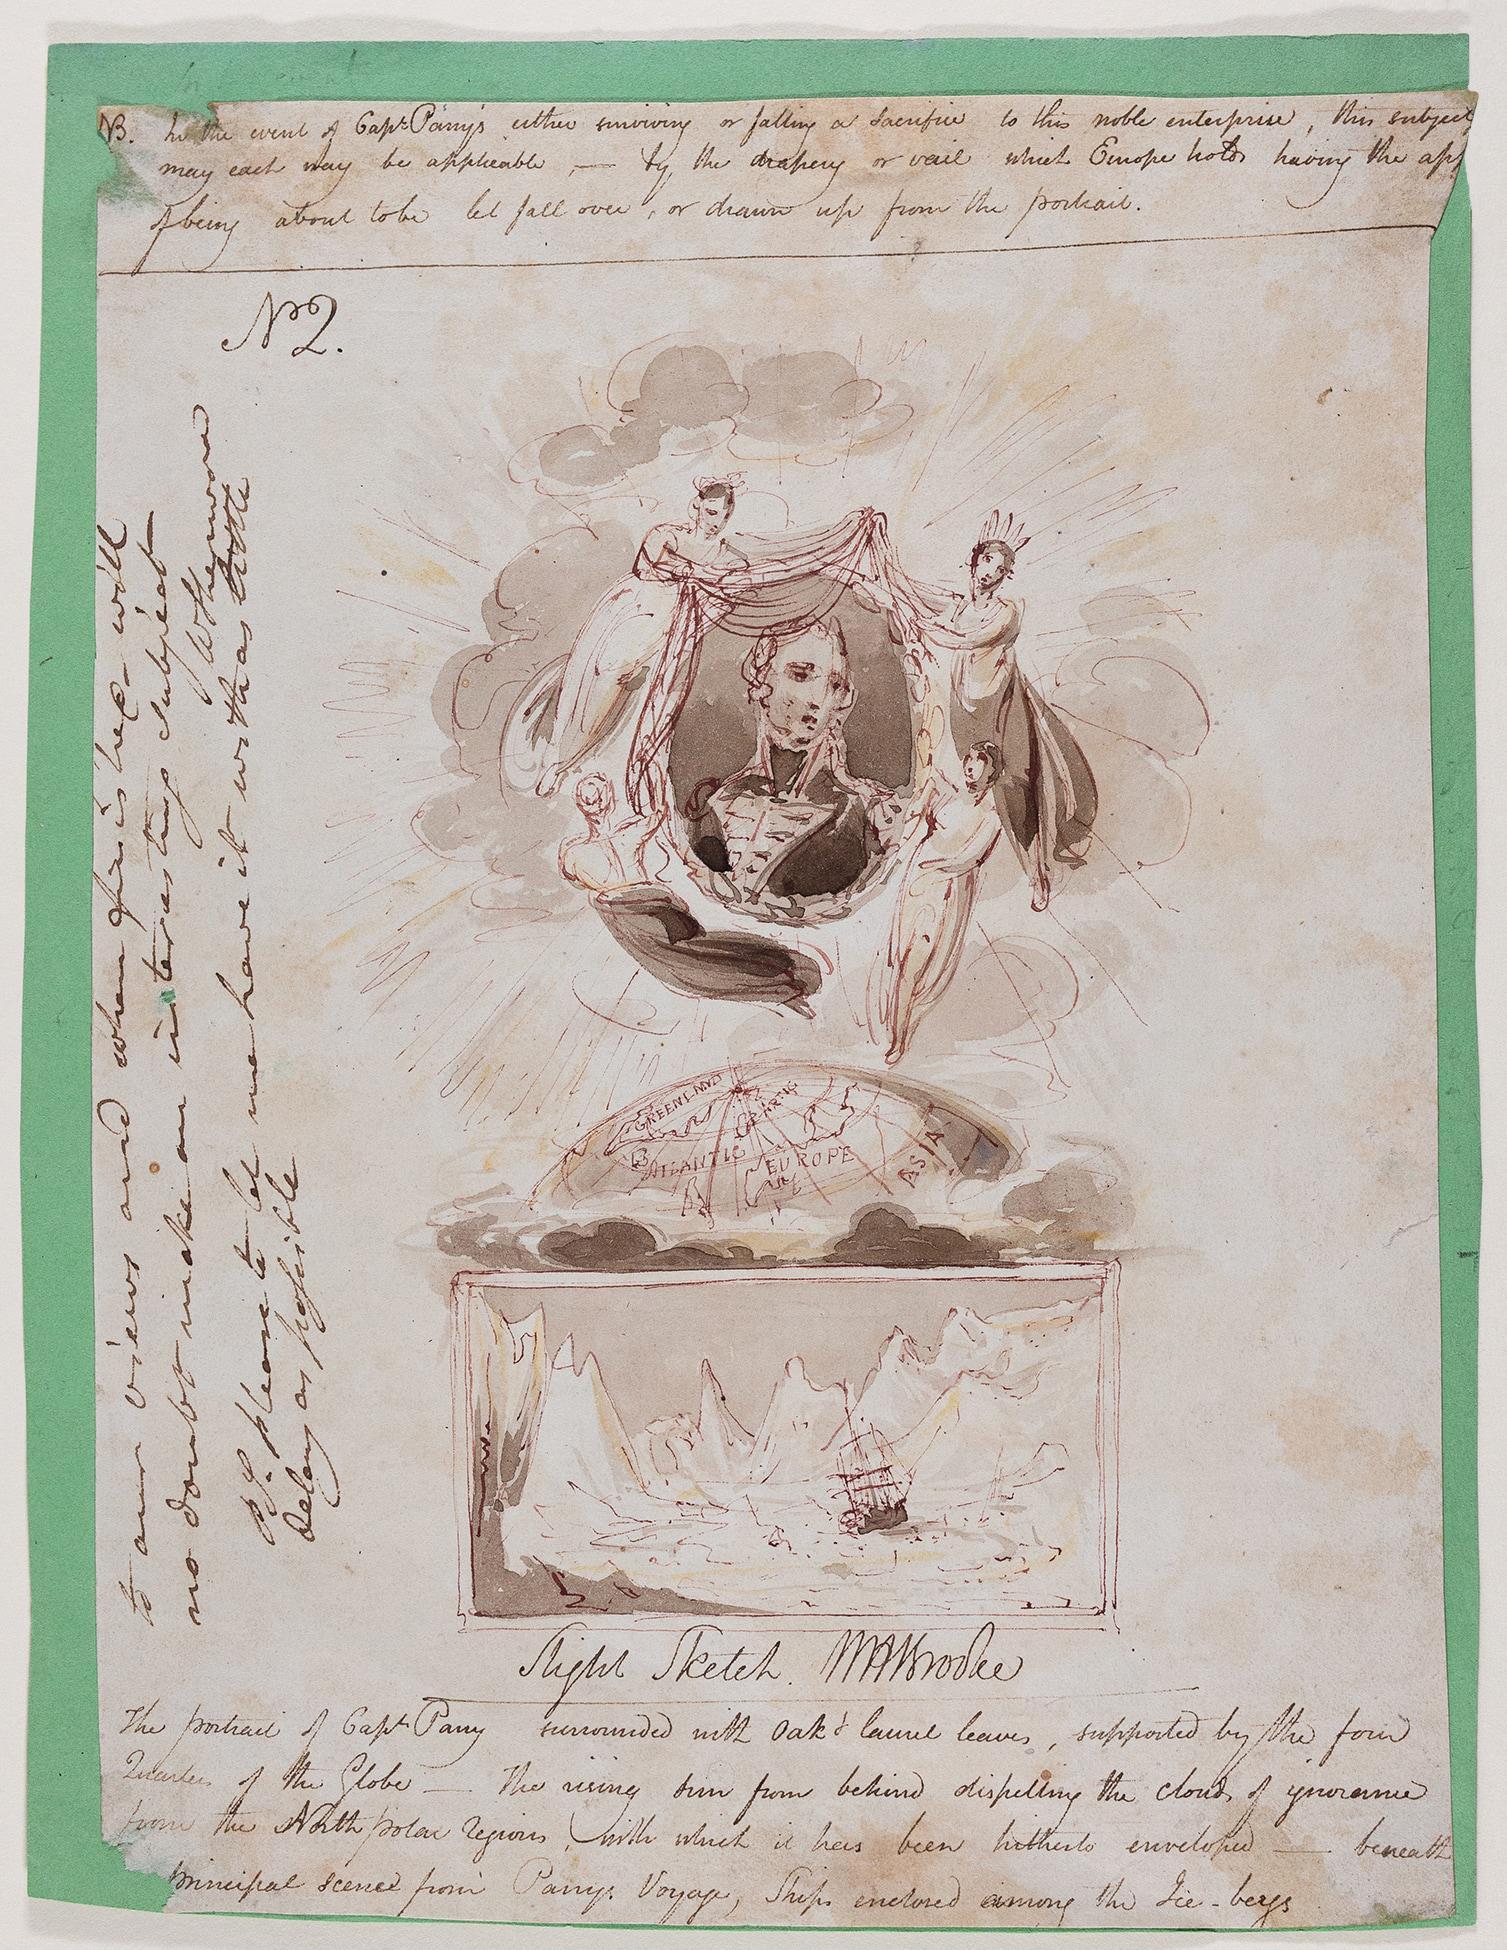 NB. In the event of Capt. Parry's either surviving or falling a Sacrifice to this noble enterprise, this subject
may each way be applicable, — by the drapery or vail which Europe holds having the app
of being about to be let fall over, or drawn up from the portrait.
No 2.
to our views and when finished will
no doubt make an interesting subject
P.S. Please to let me have it with as little
delay as possible
GREENLAND
ATLANTIC
EUROPE
ASIA
Slight Sketch. WHBrooke
The portrait of Capt. Parry surrounded with Oak & laurel leaves, supported by the four
Quarters of the Globe — The rising sun from behind dispelling the clouds of ignorance
from the North polar regions, with which it has been hitherto enveloped — beneath
principal scene from Parrys Voyage, Ships enclosed among the Ice-bergs